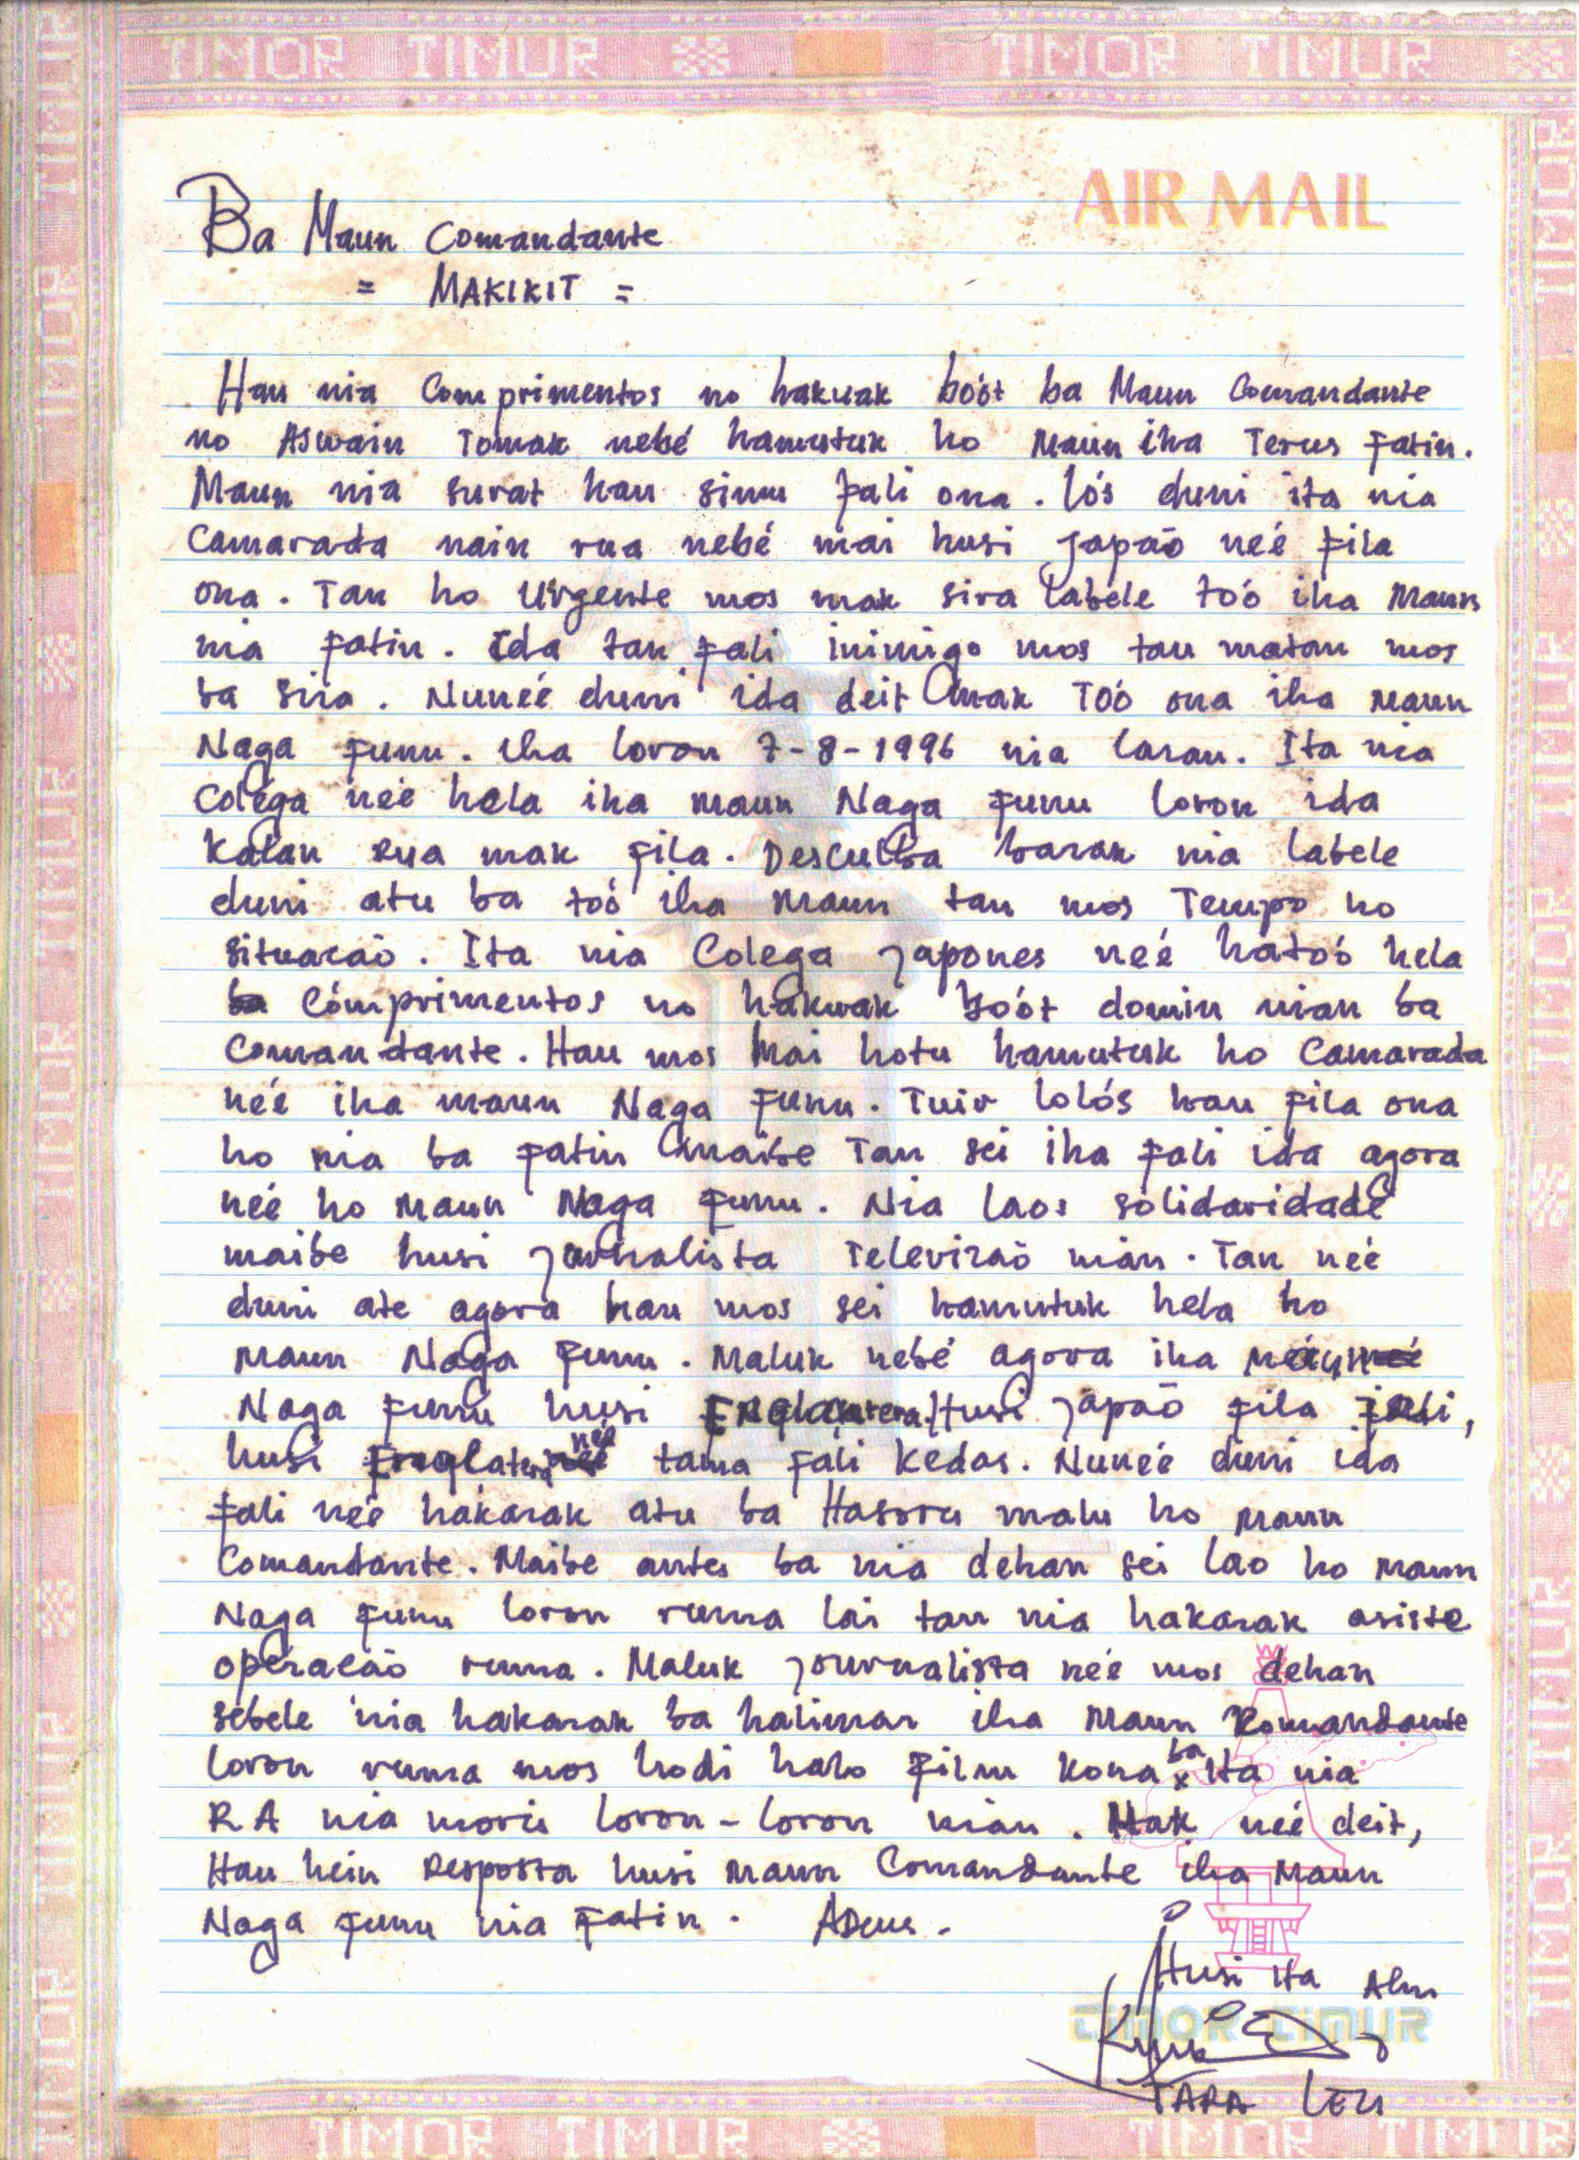 TIMOR TIMUR TIMOR TIMUR
AIR MAIL
Ba Maun Comandante
= MAKIKIT =
Hau nia Comprimentos no hakuak boót ba Maun Comandante
no Aswain Tomak nebé hamutuk ho Maun iha Terus fatin.
Maun nia surat hau simu fali ona. lós duni ita nia
Camarada nain rua nebé mai husi Japão neé fila
ona. Tan ho Urgente mos mak sira labele toó iha Maun
nia fatin. Ida tan fali inimigo mos tau matan mos
ba sira. Nuneé duni ida deit mak Toó ona iha Maun
Naga funu. Iha loron 7-8-1996 nia laran. Ita nia
Coléga neé hela iha maun Naga funu loron ida
Kalan rua mak fila. Desculba barak nia labele
duni atu ba toó iha Maun tan mos Tempo ho
situacão. Ita nia Colega Japones neé hatoó hela
Cómprimentos no hakuak boót domin nian ba
Comandante. Hau mos mai hotu hamutuk ho Camarada
neé iha maun Naga funu. Tuir lolós hau fila ona
ho nia ba fatin maibe Tan sei iha fali ida agora
neé ho Maun Naga funu. Nia laos solidaridade
maibe husi Jornalista Televizaõ nian. Tan neé
duni ate agora hau mos sei hamutuk hela ho
Maun Naga funu. Maluk nebé agora iha
Naga funu husi Englaterra. Husi Japaõ fila fali,
husi Englatera neé tama fali Kedas. Nuneé duni ida
fali neé hakarak atu ba Hasoru malu ho Maun
Comandante. Maibe antes ba nia dehan sei lao ho Maun
Naga funu loron ruma lai tan nia hakarak asiste
operacão ruma. Maluk Journalista neé mos dehan
sebele nia hakarak ba halimar iha Maun Komandante
loron ruma mos hodi halo film kona ba ita nia
RA nia moris loron-loron nian. Mak neé deit,
Hau hein Resposta husi Maun Comandante iha Maun
Naga funu nia fatin. Adeus.
Husi ita Alin
TIMOR TIMUR
TARA LELI
TIMOR TIMUR TIMOR TIMUR